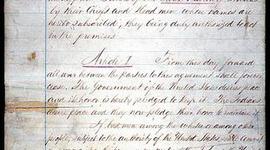 by their Chiefs and Head men whose names are
hereto subscribed, they being duly authorized to act
in the premises.
Article I. From this day forward
all war between the parties to this agreement shall forever
cease. The Government of the United States desires peace
and its honor is hereby pledged to keep it. The Indians
desire peace and they now pledge their honor to maintain it.
If bad men among the whites or among other
people, subject to the authority of the United States shall commit